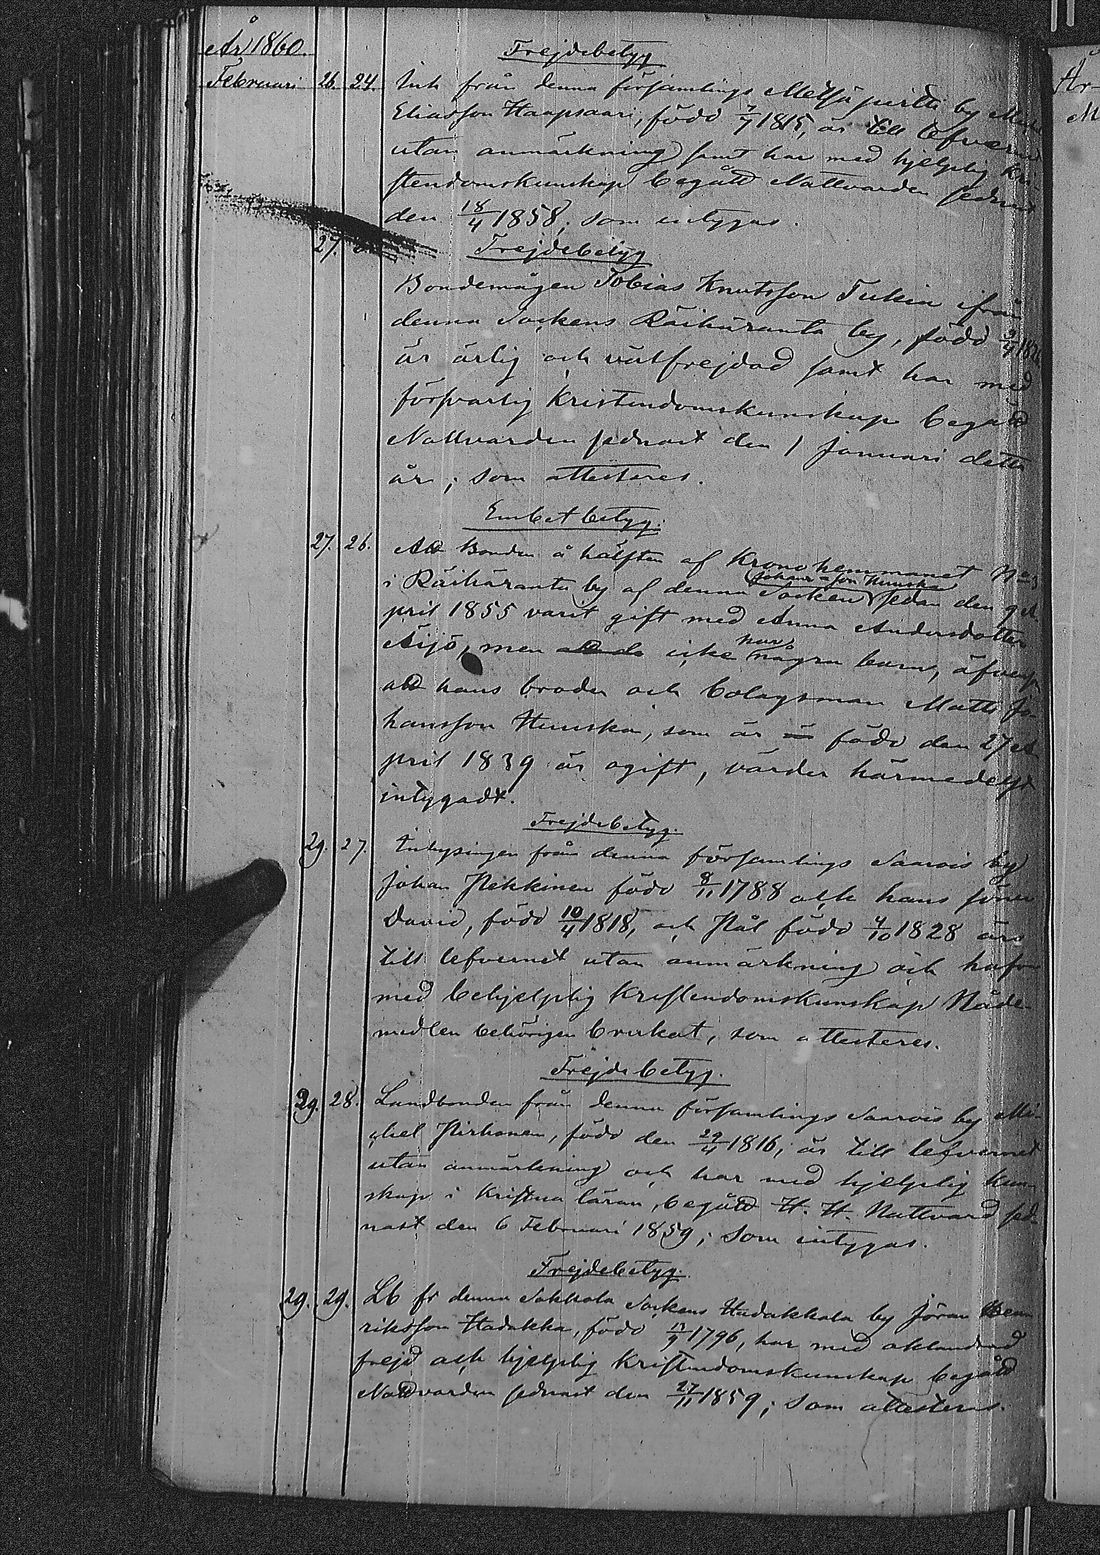 År 1860
Frejdebetyg
Februari 26. 24. Inh från denna församlings Metsäpirtti by Matts
Eliasson Haapsaari, född 7/7 1815, är till lefvernet
utan anmärkning samt har med hjelplig kri-
stendomskunskap begått Nattvarden sednast
den 18/4 1858, som intygas.
27. Frejdebetyg
Bondemågen Tobias Knutsson Tukia ifrån
denna Sockens Räihäranta by, född
är ärlig och välfrejdad samt har med
försvarlig kristendomskunskap begått
Nattvarden sednast den 1 Januari detta
år; som attesteres.
Embetbetyg.
27. 26. Att Bonden å hälften af Kronohemmanet No 3
i Räihäranta by af denna Socken Johan Johansson Hunska sedan den 9 A-
pril 1855 varit gift med Anna Andersdotter
Äijö, men icke har några barn, äfvensom
att hans broder och bolagsman Matts Jo-
hansson Hunska, som är född den 27 A-
pril 1839 är ogift, varder härmedelst
intygadt.
Frejdebetyg.
29. 27. Inhysingen från denna församlings Saarois by
Johan Pekkinen född 8/11 1788 och hans söner
David, född 10/4 1818, och Pål född 4/10 1828 äro
till lefvernet utan anmärkning och hafva
med behjelplig kristendomskunskap Nåde-
medlen behörigen brukat, som attesteres.
Frejdebetyg.
29. 28. Landbonden från denna församlings Saarois by Mi-
chel Pirhonen, född den 29/4 1816, är till lefvernet
utan anmärkning och har med hjelplig kun-
skap i Kristna läran, begått H. H. Nattvard sed-
nast den 6 Februari 1859; som intygas.
Frejdebetyg.
29. 29. Lb fr denna Sakkola Sockens Hadakkala by Jöran Hen-
riksson Hadakka, född 1796, har med oklandrad
frejd och hjelplig kristendomskunskap begått
Nattvarden sednast den 27/11 1859; som attesteres.
År
M